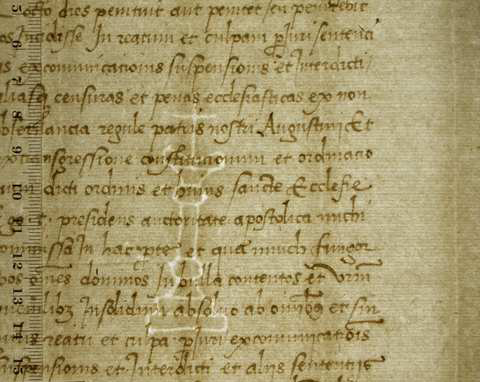 octo dies penituit aut penitet seu penitebit
Incidisse In reatum et culpam pluri sententia
excomunicationis suspensionis et Interdicti
aliasq censuras et penas ecclesiasticas ex non
observancia regule patris nostri Augustini Et
transgressione constitucionum et ordinacio
dicti ordinis et huius sancte Ecclesie
presidens auctoritate apostolica michi
In hac pte et qua much fungor
oes dominos In bulla contentos et Vrm
Insolidum absoluo ab omibq et sin
reatu et culpa pluri excomunicatois
suspensionis et Interdicti et alijs sententijs
5
6
7
8
9
10
11
12
13
14
15